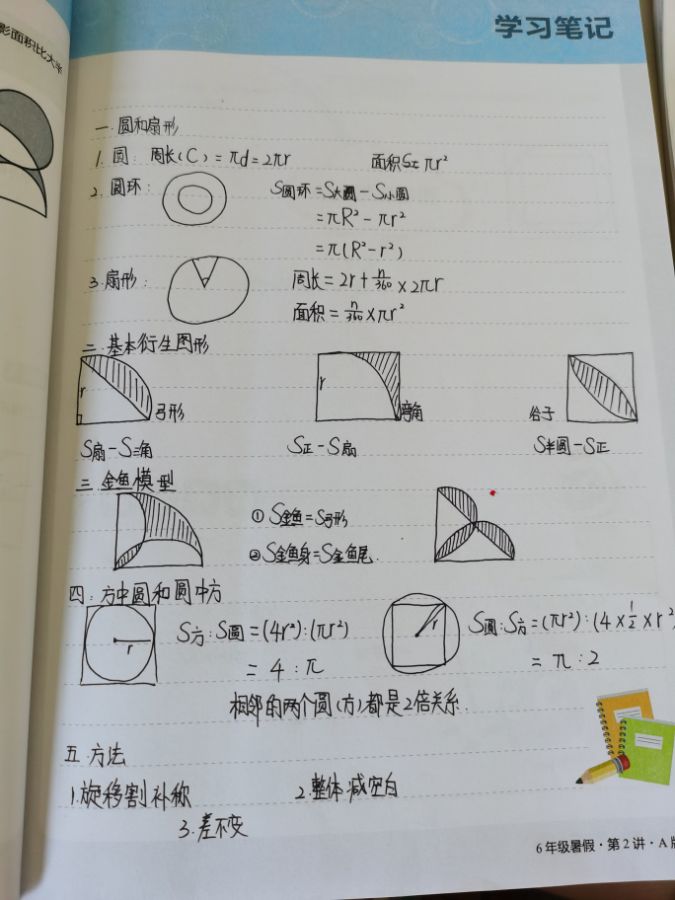 影面积比大半
学习笔记
一.圆和扇形
1.圆: 周长(C)=πd=2πr 面积S=πr²
2.圆环: S圆环=S大圆-S小圆
=πR²-πr²
=π(R²-r²)
3.扇形: 周长=2r+n/360×2πr
面积=n/360×πr²
二.基本衍生图形
r 弓形 r 弯角 谷子
S扇-S三角 S正-S扇 S半圆-S正
三.金鱼模型
①S金鱼=S弓形
②S金鱼身=S金鱼尾.
四:方中圆和圆中方
r S方:S圆=(4r²):(πr²) r S圆:S方=(πr²):(4×1/2×r²
=4:π =π:2
相邻的两个圆(方)都是2倍关系.
五.方法
1.旋移割补称 2.整体减空白
3.差不变
6年级暑假·第2讲·A版